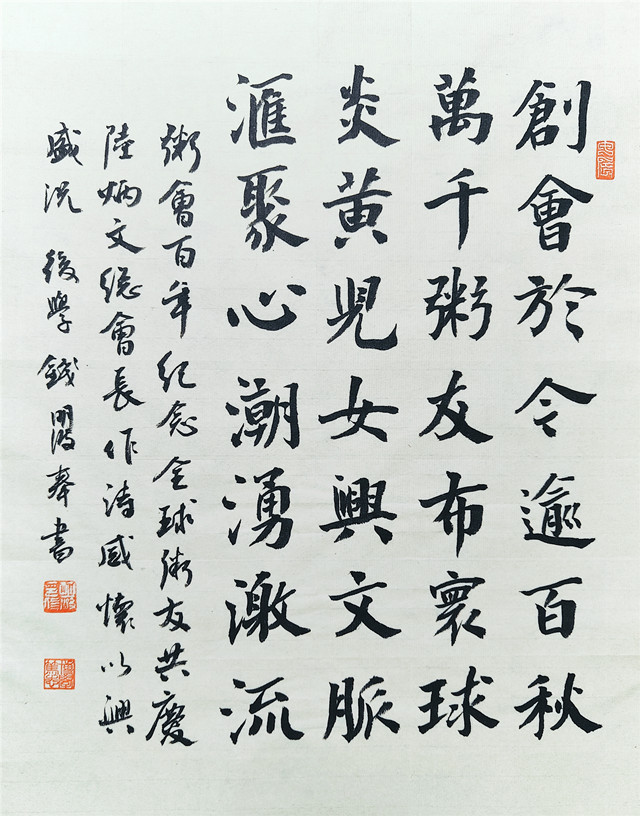 創會於今逾百秋
萬千粥友布寰球
炎黃兒女興文脈
滙聚心潮湧激流
粥會百年紀念全球粥友共慶
陸炳文總會長作詩感懷以興
盛況 後學錢奉書